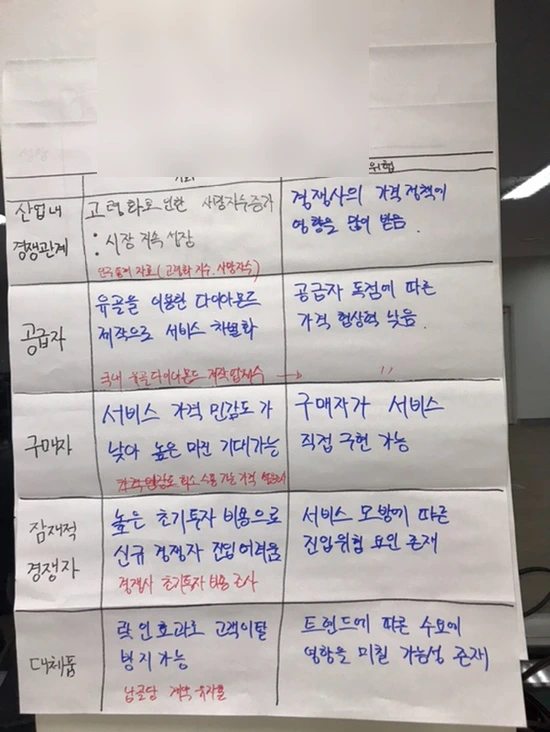 기회 위협
산업내
경쟁관계
고령화로 인한 사망자수증가
: 시장 지속 성장
인구통계 자료 (고령화 지수, 사망자수)
경쟁사의 가격정책에
영향을 많이 받음.
공급자
유골을 이용한 다이아몬드
제작으로 서비스 차별화
국내 유골다이아몬드 제작업체수 →
공급자 독점에 따른
가격 협상력 낮음.
〃
구매자
서비스 가격 민감도가
낮아 높은 마진 기대가능
가격 민감도 최소 수용 가능 가격
구매자가 서비스
직접 구현 가능
잠재적
경쟁자
높은 초기투자 비용으로
신규 경쟁자 진입 어려움
경쟁사 초기투자 비용 조사
서비스 모방에 따른
진입위협 요인 존재
대체품
락인효과로 고객이탈
방지 가능
납골당 계약 유지율
트렌드에 따른 수요에
영향을 미칠 가능성 존재